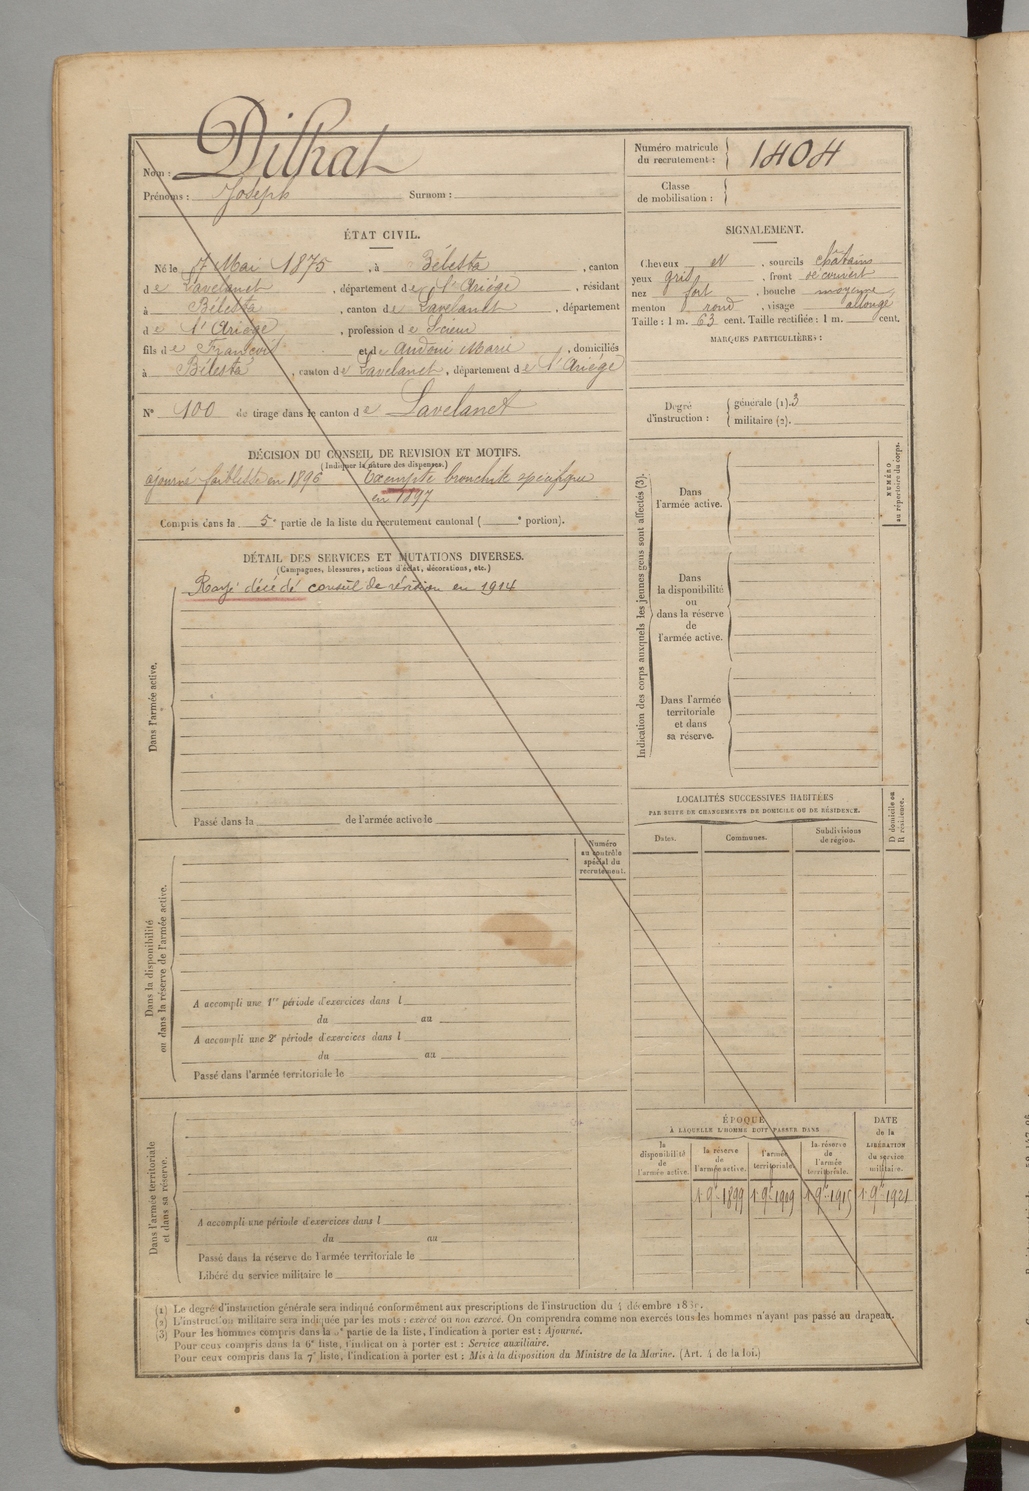 Nom : Dilhat
Prénoms : Joseph Surnom :
Numéro matricule du recrutement : 1404
Classe de mobilisation :
ÉTAT CIVIL.
Né le 7 Mai 1875, à Bélesta, canton
de Lavelanet, département de l'Ariége, résidant
à Bélesta, canton de Lavelanet, département
de l'Ariége, profession de Scieur
fils de François et de Andoni Marie, domiciliés
à Bélesta, canton de Lavelanet, département de l'Ariége
N° 100 de tirage dans le canton de Lavelanet
SIGNALEMENT.
Cheveux N, sourcils châtains
yeux gris, front découvert
nez fort, bouche moyenne
menton rond, visage allongé
Taille : 1 m. 63 cent. Taille rectifiée : 1 m. cent.
MARQUES PARTICULIÈRES :
Degré d'instruction : générale (1). 3
militaire (2).
DÉCISION DU CONSEIL DE REVISION ET MOTIFS.
(Indiquer la nature des dispenses.)
ajourné faiblesse en 1896 Exempté bronchite spécifique
en 1897
Compris dans la 5e partie de la liste du recrutement cantonal ( e portion).
DÉTAIL DES SERVICES ET MUTATIONS DIVERSES.
(Campagnes, blessures, actions d'éclat, décorations, etc.)
Rayé décédé conseil de révision en 1914
Dans l'armée active.
Passé dans la de l'armée active le
Indication des corps auxquels les jeunes gens sont affectés (3).
Dans l'armée active.
Dans la disponibilité ou dans la réserve de l'armée active.
Dans l'armée territoriale et dans sa réserve.
NUMÉRO au répertoire du corps.
LOCALITÉS SUCCESSIVES HABITÉES
PAR SUITE DE CHANGEMENTS DE DOMICILE OU DE RÉSIDENCE.
Dates. Communes. Subdivisions de région.
D domicile ou R résidence.
Numéro au contrôle spécial du recrutement.
Dans la disponibilité ou dans la réserve de l'armée active.
A accompli une 1re période d'exercices dans l
du au
A accompli une 2e période d'exercices dans l
du au
Passé dans l'armée territoriale le
Dans l'armée territoriale et dans sa réserve.
A accompli une période d'exercices dans l
du au
Passé dans la réserve de l'armée territoriale le
Libéré du service militaire le
ÉPOQUE
À LAQUELLE L'HOMME DOIT PASSER DANS
la disponibilité de l'armée active.
la réserve de l'armée active.
l'armée territoriale.
la réserve de l'armée territoriale.
DATE de la LIBÉRATION du service militaire.
1 9bre 1899 1 9bre 1909 1 9bre 1915 1 9bre 1921
(1) Le degré d'instruction générale sera indiqué conformément aux prescriptions de l'instruction du 4 décembre
(2) L'instruction militaire sera indiquée par les mots : exercé ou non exercé. On comprendra comme non exercés tous les hommes n'ayant pas passé au drapeau.
(3) Pour les hommes compris dans la 5e partie de la liste, l'indication à porter est : Ajourné.
Pour ceux compris dans la 6e liste, l'indication à porter est : Service auxiliaire.
Pour ceux compris dans la 7e liste, l'indication à porter est : Mis à la disposition du Ministre de la Marine. (Art. 4 de la loi.)